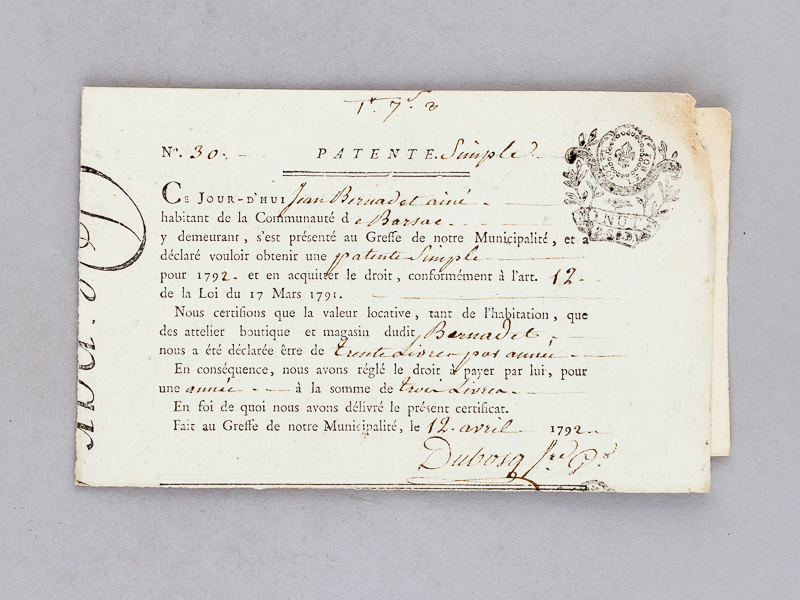 Nº. 30.
PATENTE. Simple
CE JOUR-D'HUI Jean Bernadet ainé
habitant de la Communauté de Barsac
y demeurant, s'est présenté au Greffe de notre Municipalité, et a
déclaré vouloir obtenir une patente Simple
pour 1792. et en acquitter le droit, conformément à l'art. 12.
de la Loi du 17 Mars 1791.
Nous certifions que la valeur locative, tant de l'habitation, que
des attelier boutique et magasin dudit Bernadet,
nous a été déclarée être de trente Livres par année
En conséquence, nous avons réglé le droit à payer par lui, pour
une année à la somme de trois Livres
En foi de quoi nous avons délivré le présent certificat.
Fait au Greffe de notre Municipalité, le 12. avril 1792.
Dubosq